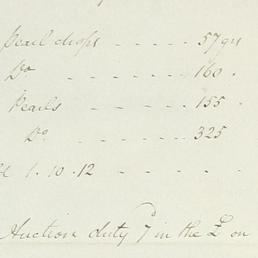 Pearl drops - - - - - 57 grs
Do - - - - - 160 .
Pearls - - - - - 155 .
Do. - - - - - 325
1 . 10 . 12 - - - -
Auction duty 7 in the £ on